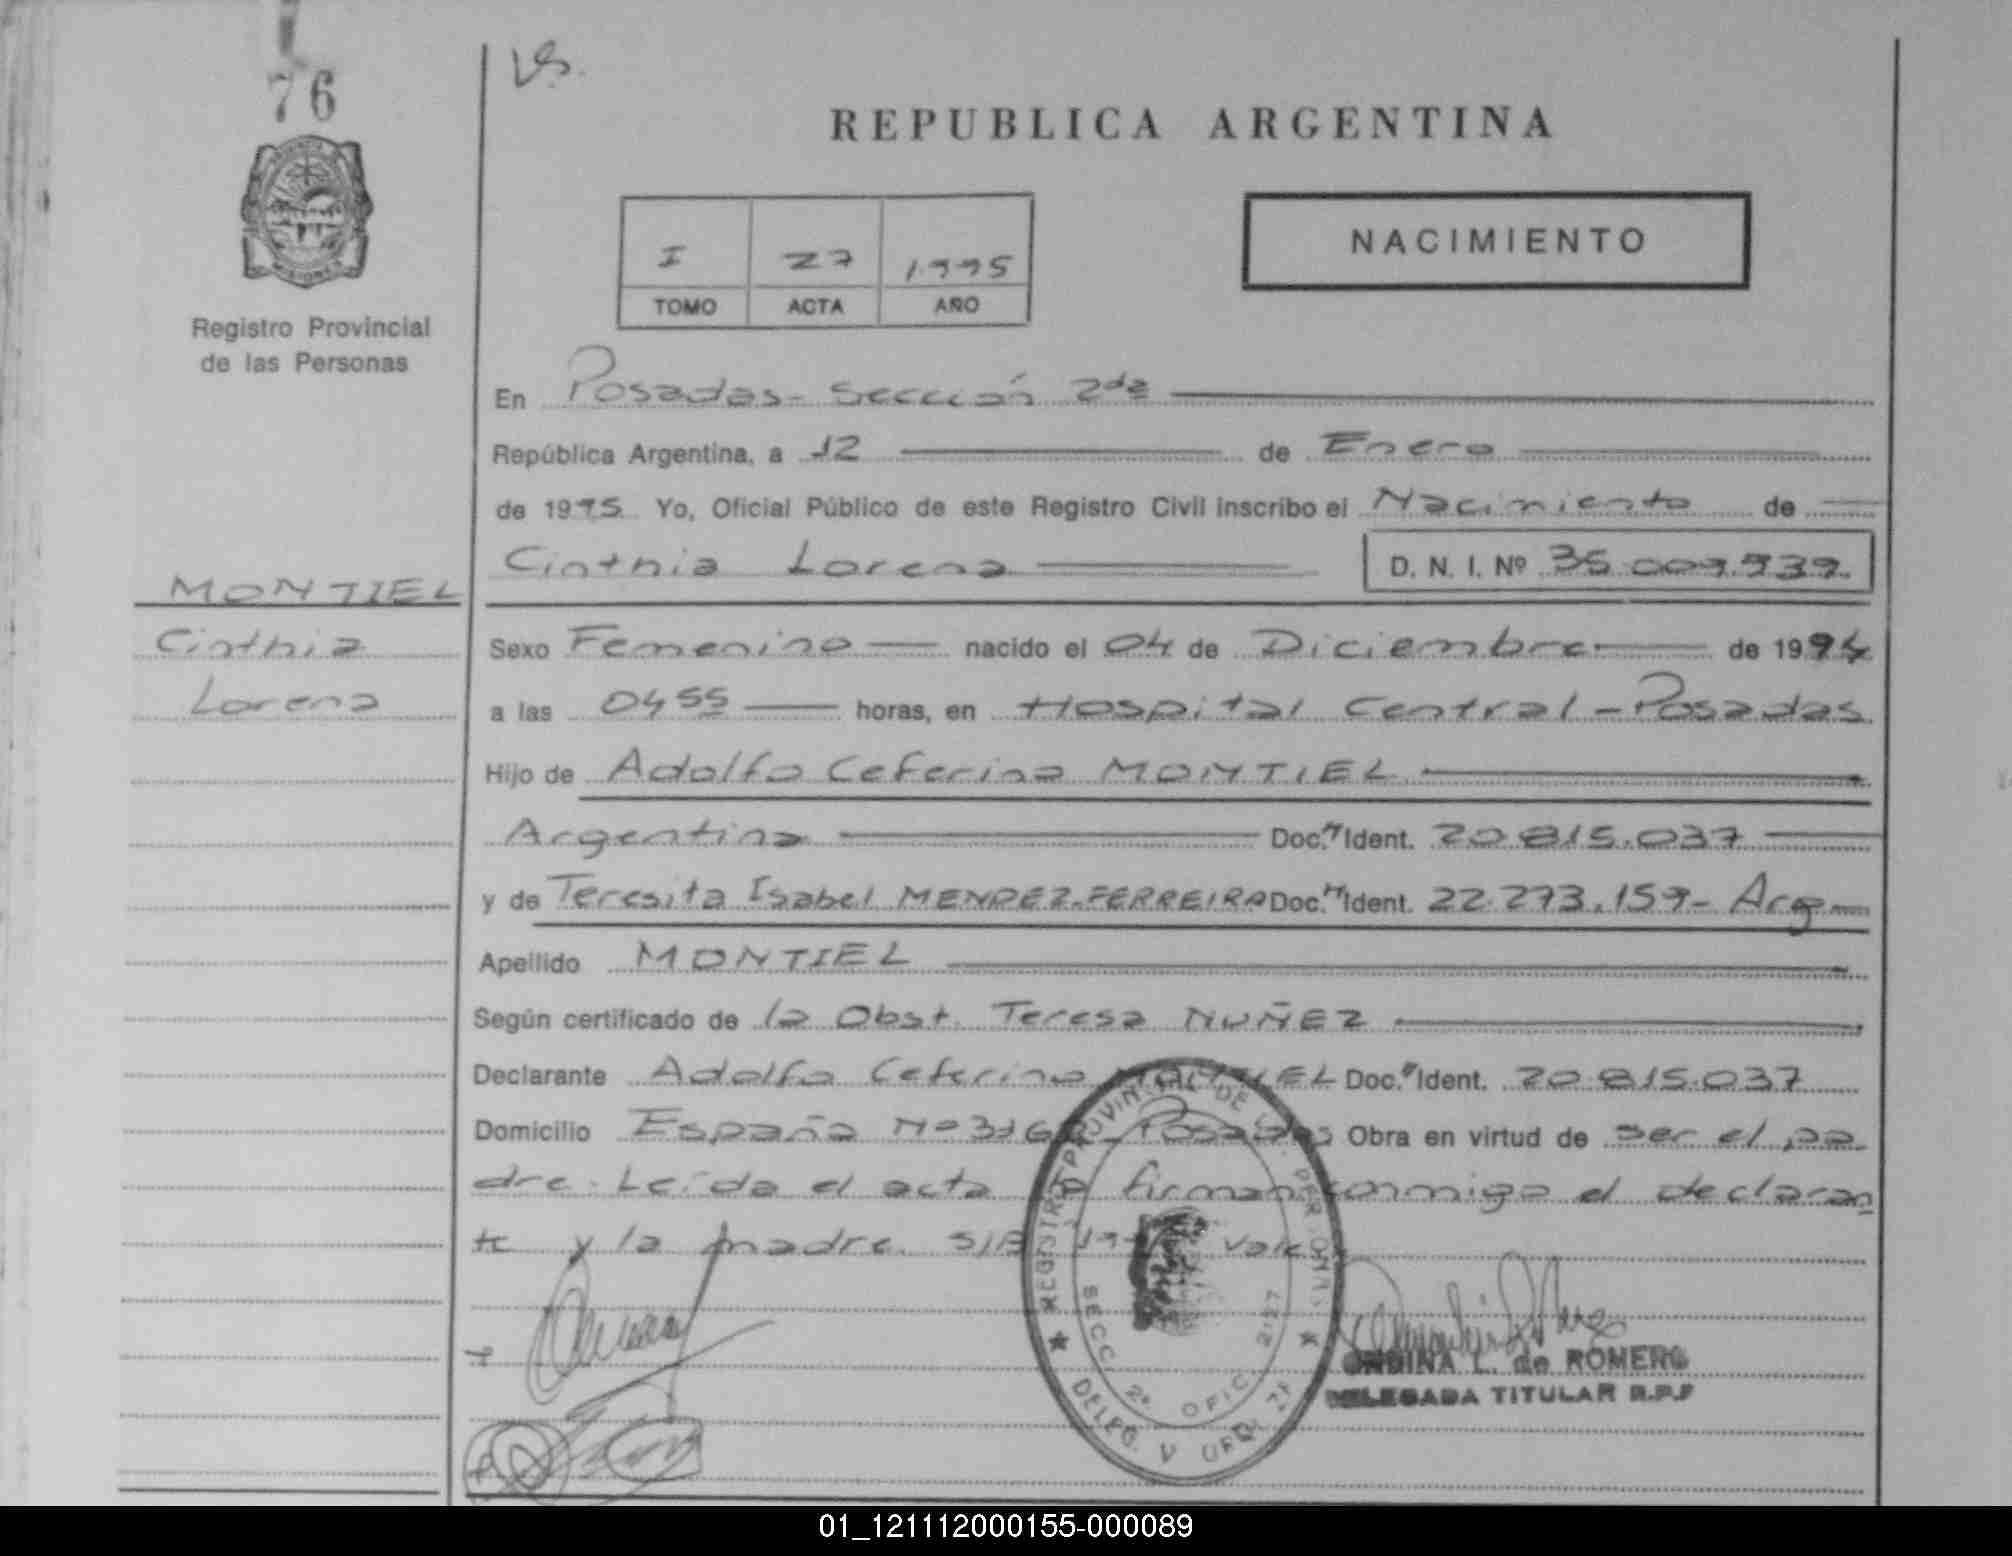 76
VS.
REPUBLICA ARGENTINA
I 27 1.995
TOMO ACTA AÑO
NACIMIENTO
MISIONES
Registro Provincial
de las Personas
En Posadas - Sección 2da
República Argentina, a 12 de Enero
de 1995 Yo, Oficial Público de este Registro Civil inscribo el Nacimiento de
Cinthia Lorena D. N. I. Nº 35.009.939.
MONTIEL
Cinthia
Lorena
Sexo Femenino nacido el 04 de Diciembre de 1994
a las 04 55 horas, en Hospital Central - Posadas
Hijo de Adolfo Ceferino MONTIEL
Argentino Doc. Ident. 20.815.037
y de Teresita Isabel MENDEZ FERREIRA Doc. Ident. 22.273.159 - Arg
Apellido MONTIEL
Según certificado de la Obst. Teresa NUÑEZ
Declarante Adolfo Ceferino MONTIEL Doc. Ident. 20.815.037
Domicilio España Nº Posadas Obra en virtud de ser el pa-
dre. Leída el acta firman conmigo el declaran-
te y la madre. S/B vale
REGISTRO PROVINCIAL DE L. PERSONAS
SECC. 2ª OFIC. 2127
DELEG.
ONDINA L. de ROMERO
DELEGADA TITULAR R.P.P
01_121112000155-000089